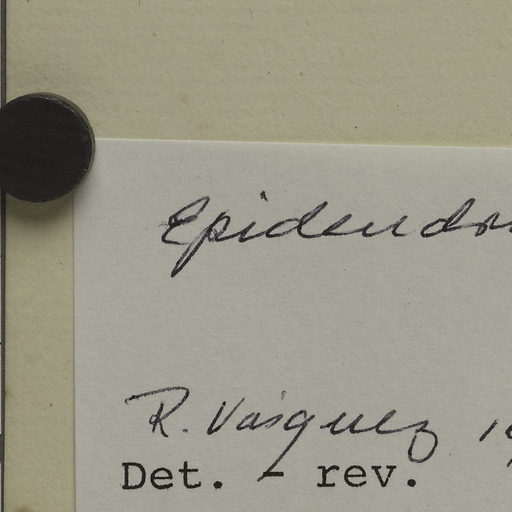 Epidendr
R. Vásquez 19
Det. - rev.